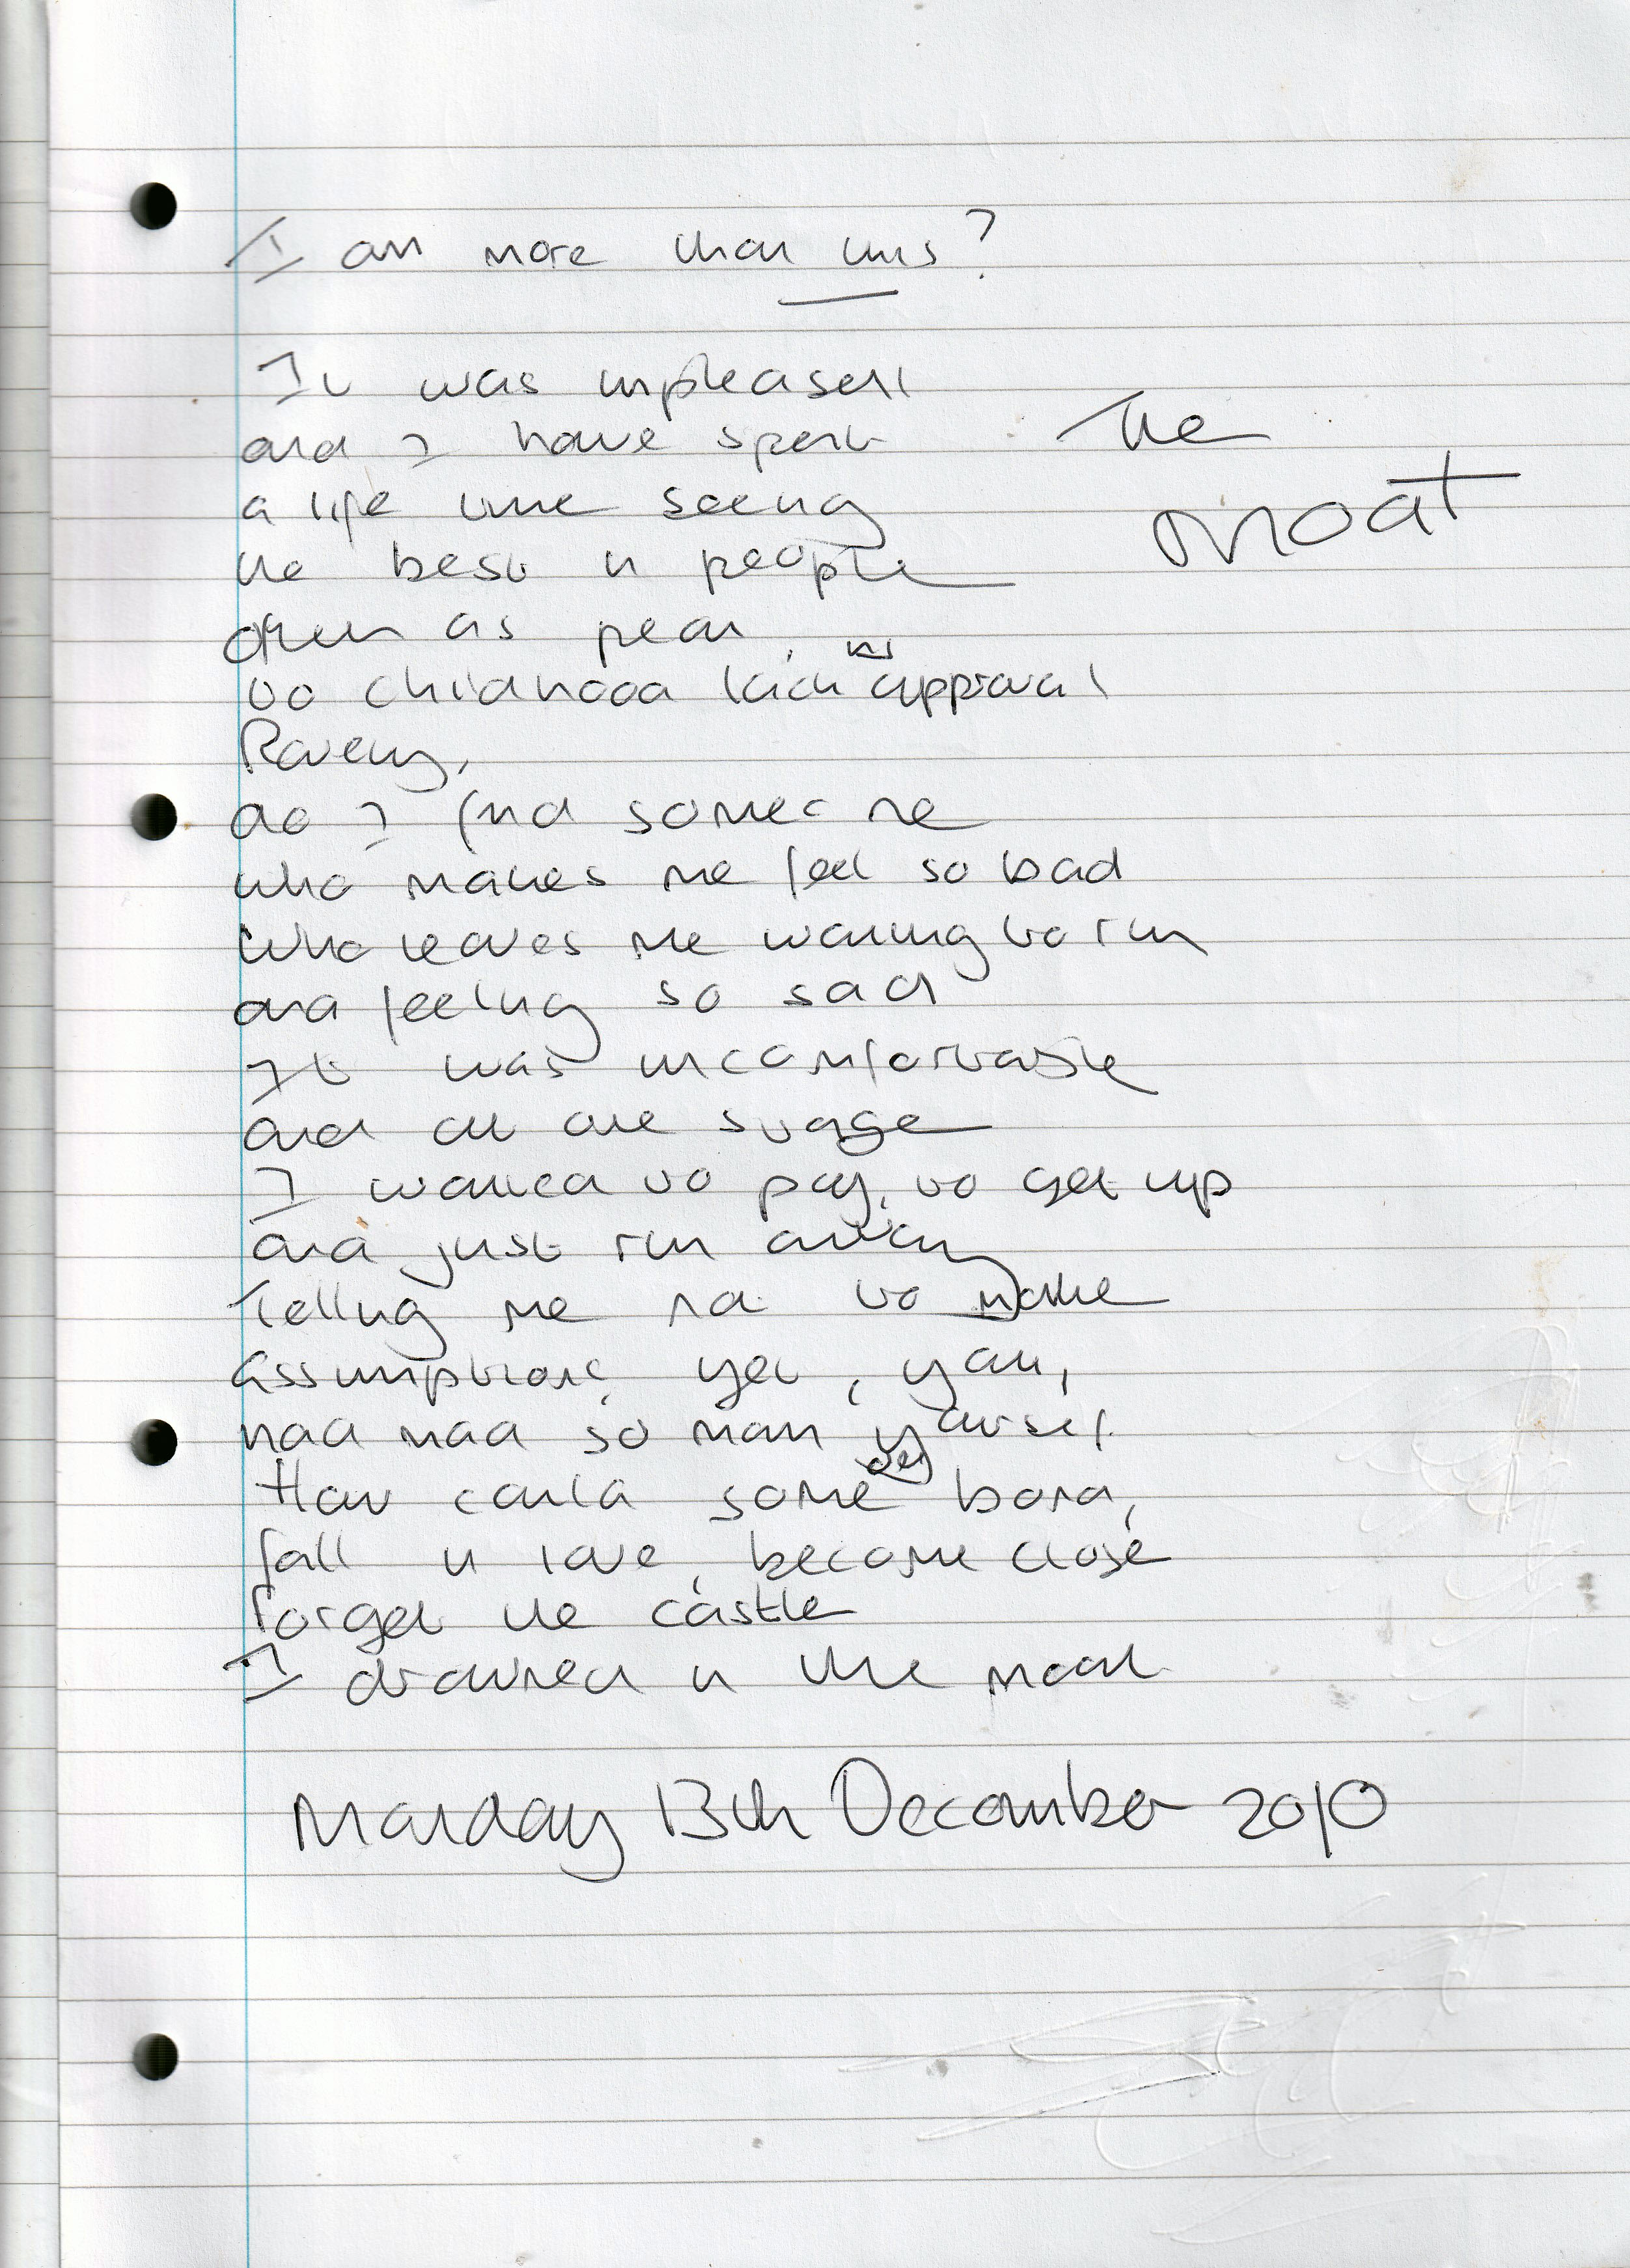 I am more than this?
It was unpleasent
and I have spent
a life time seeing
the best in people
The
moat
often as pean,
to childhood kich his approval
Raveny,
do I find some one
who makes me feel so bad
who leaves me wanting to run
and feeling so sad
It was uncomfortable
and at one stage
I wanted to pay, to get up
and just run away
Telling me not to make
assumptions yet, you,
had mad so many yourself
How could some one bond,
fall in love, become close
forget the castle
I drowned in the moat
Monday 13th December 2010